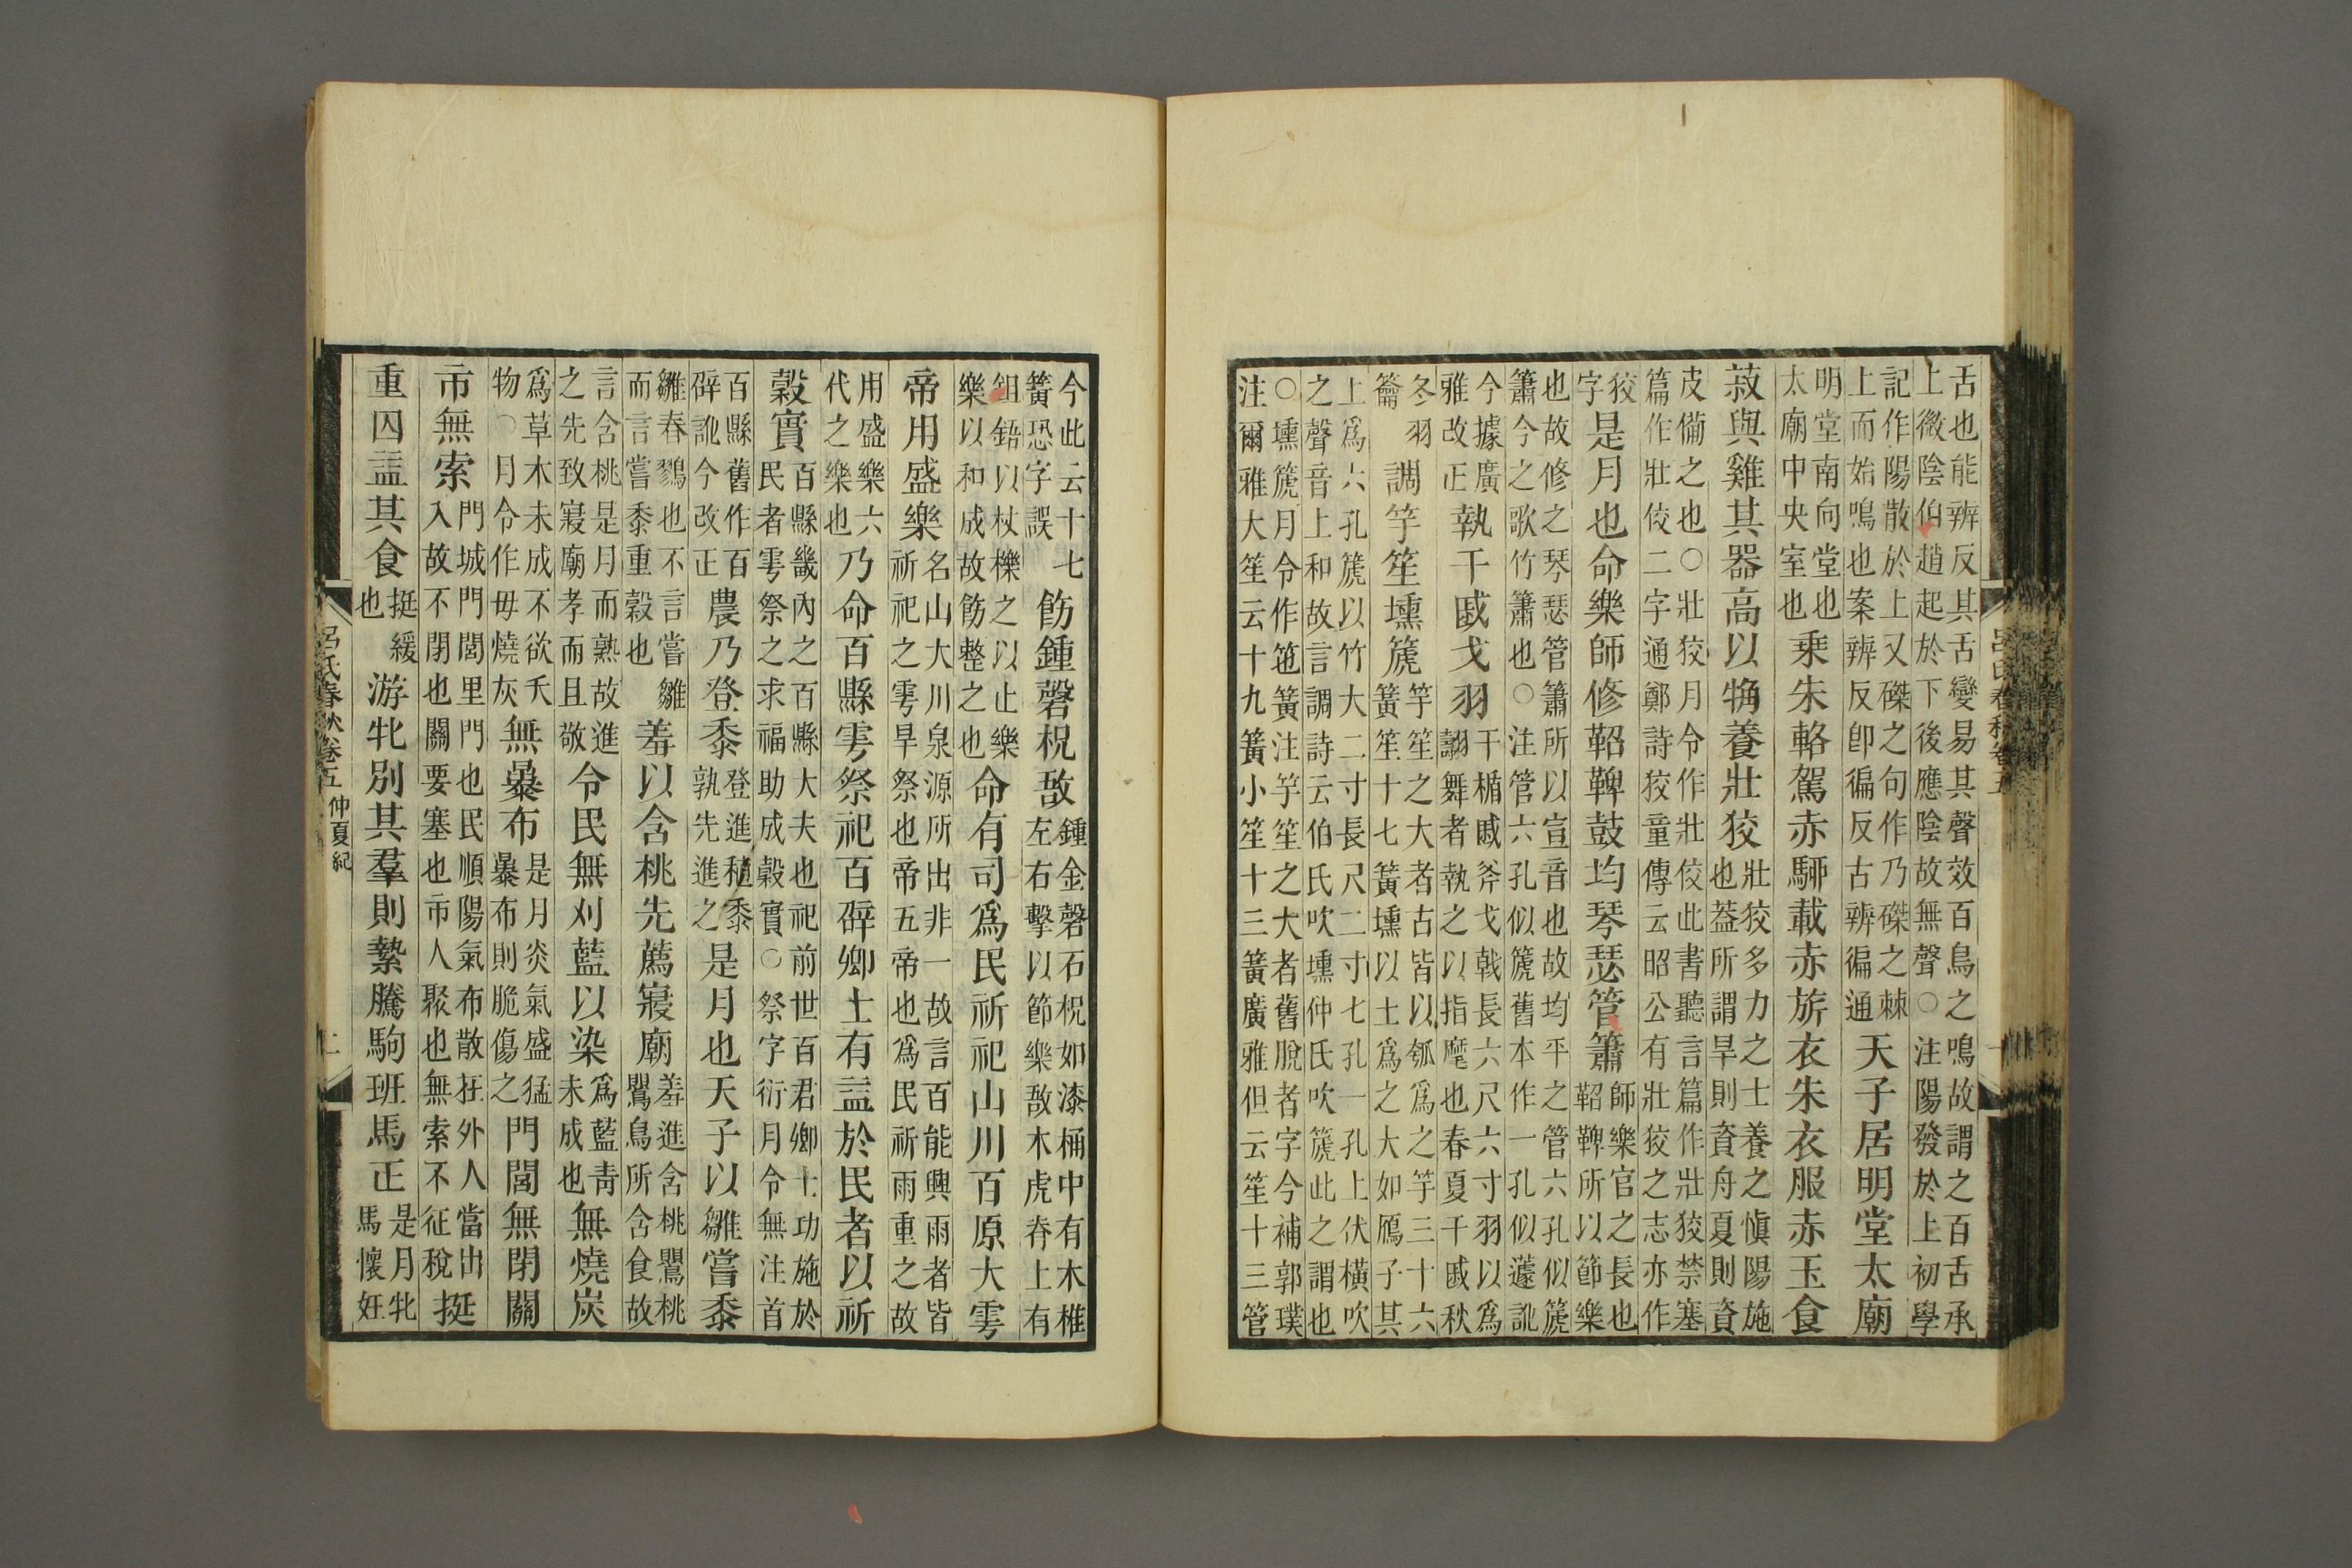 舌也能辨反其舌變易其聲效百鳥之鳴故謂之百舌承
上微陰伯趙起於下後應陰故無聲○注陽發於上初學
記作陽散於上又磔之句作乃磔之棘
上而始鳴也案辨反卽徧反古辨徧通天子居明堂太廟
明堂南向堂也
太廟中央室也乘朱輅駕赤駵載赤旂衣朱衣服赤玉食
菽與雞其器高以觕養壯狡壯狡多力之士養之愼陽施
也葢所謂旱則資舟夏則資
皮備之也○壯狡月令作壯佼此書聽言篇作壯狡禁塞
篇作壯佼二字通鄭詩狡童傳云昭公有壯狡之志亦作
狡
字是月也命樂師修鞀鞞鼓均琴瑟管簫師樂官之長也
鞀鞞所以節樂
也故修之琴瑟管簫所以宣音也故均平之管六孔似篪
簫今之歌竹簫也○注管六孔似篪舊本作一孔似蘧訛
今據廣
雅改正執干戚戈羽干楯戚斧戈戟長六尺六寸羽以爲
翿舞者執之以指麾也春夏干戚秋
冬羽
籥調竽笙壎篪竽笙之大者古皆以瓠爲之竽三十六
簧笙十七簧壎以土爲之大如鴈子其
上爲六孔篪以竹大二寸長尺二寸七孔一孔上伏橫吹
之聲音上和故言調詩云伯氏吹壎仲氏吹篪此之謂也
○壎篪月令作竾簧注竽笙之大者舊脫者字今補郭璞
注爾雅大笙云十九簧小笙十三簧廣雅但云笙十三管
今此云十七
簧恐字誤飭鍾磬柷敔鍾金磬石柷如漆桶中有木椎
左右擊以節樂敔木虎脊上有
鉏鋙以杖櫟之以止樂
樂以和成故飭整之也命有司爲民祈祀山川百原大雩
帝用盛樂名山大川泉源所出非一故言百能興雨者皆
祈祀之雩旱祭也帝五帝也爲民祈雨重之故
用盛樂六
代之樂也乃命百縣雩祭祀百辟卿士有益於民者以祈
穀實百縣畿內之百縣大夫也祀前世百君卿士功施於
民者雩祭之求福助成穀實○祭字衍月令無注首
百縣舊作百
辟訛今改正農乃登黍登進稙黍
孰先進之是月也天子以雛嘗黍
雛春鷚也不言嘗雛
而言嘗黍重穀也羞以含桃先薦寢廟羞進含桃鸎桃
鸎鳥所含食故
言含桃是月而熟故進
之先致寢廟孝而且敬令民無刈藍以染爲藍靑
未成也無燒炭
爲草木未成不欲夭
物○月令作毋燒灰無暴布是月炎氣盛猛
暴布則脆傷之門閭無閉關
市無索門城門閭里門也民順陽氣布散在外人當出
入故不閉也關要塞也市人聚也無索不征稅挺
重囚益其食挺緩
也游牝別其羣則縶騰駒班馬正是月牝
馬懷妊
呂氏春秋卷五 仲夏紀
二